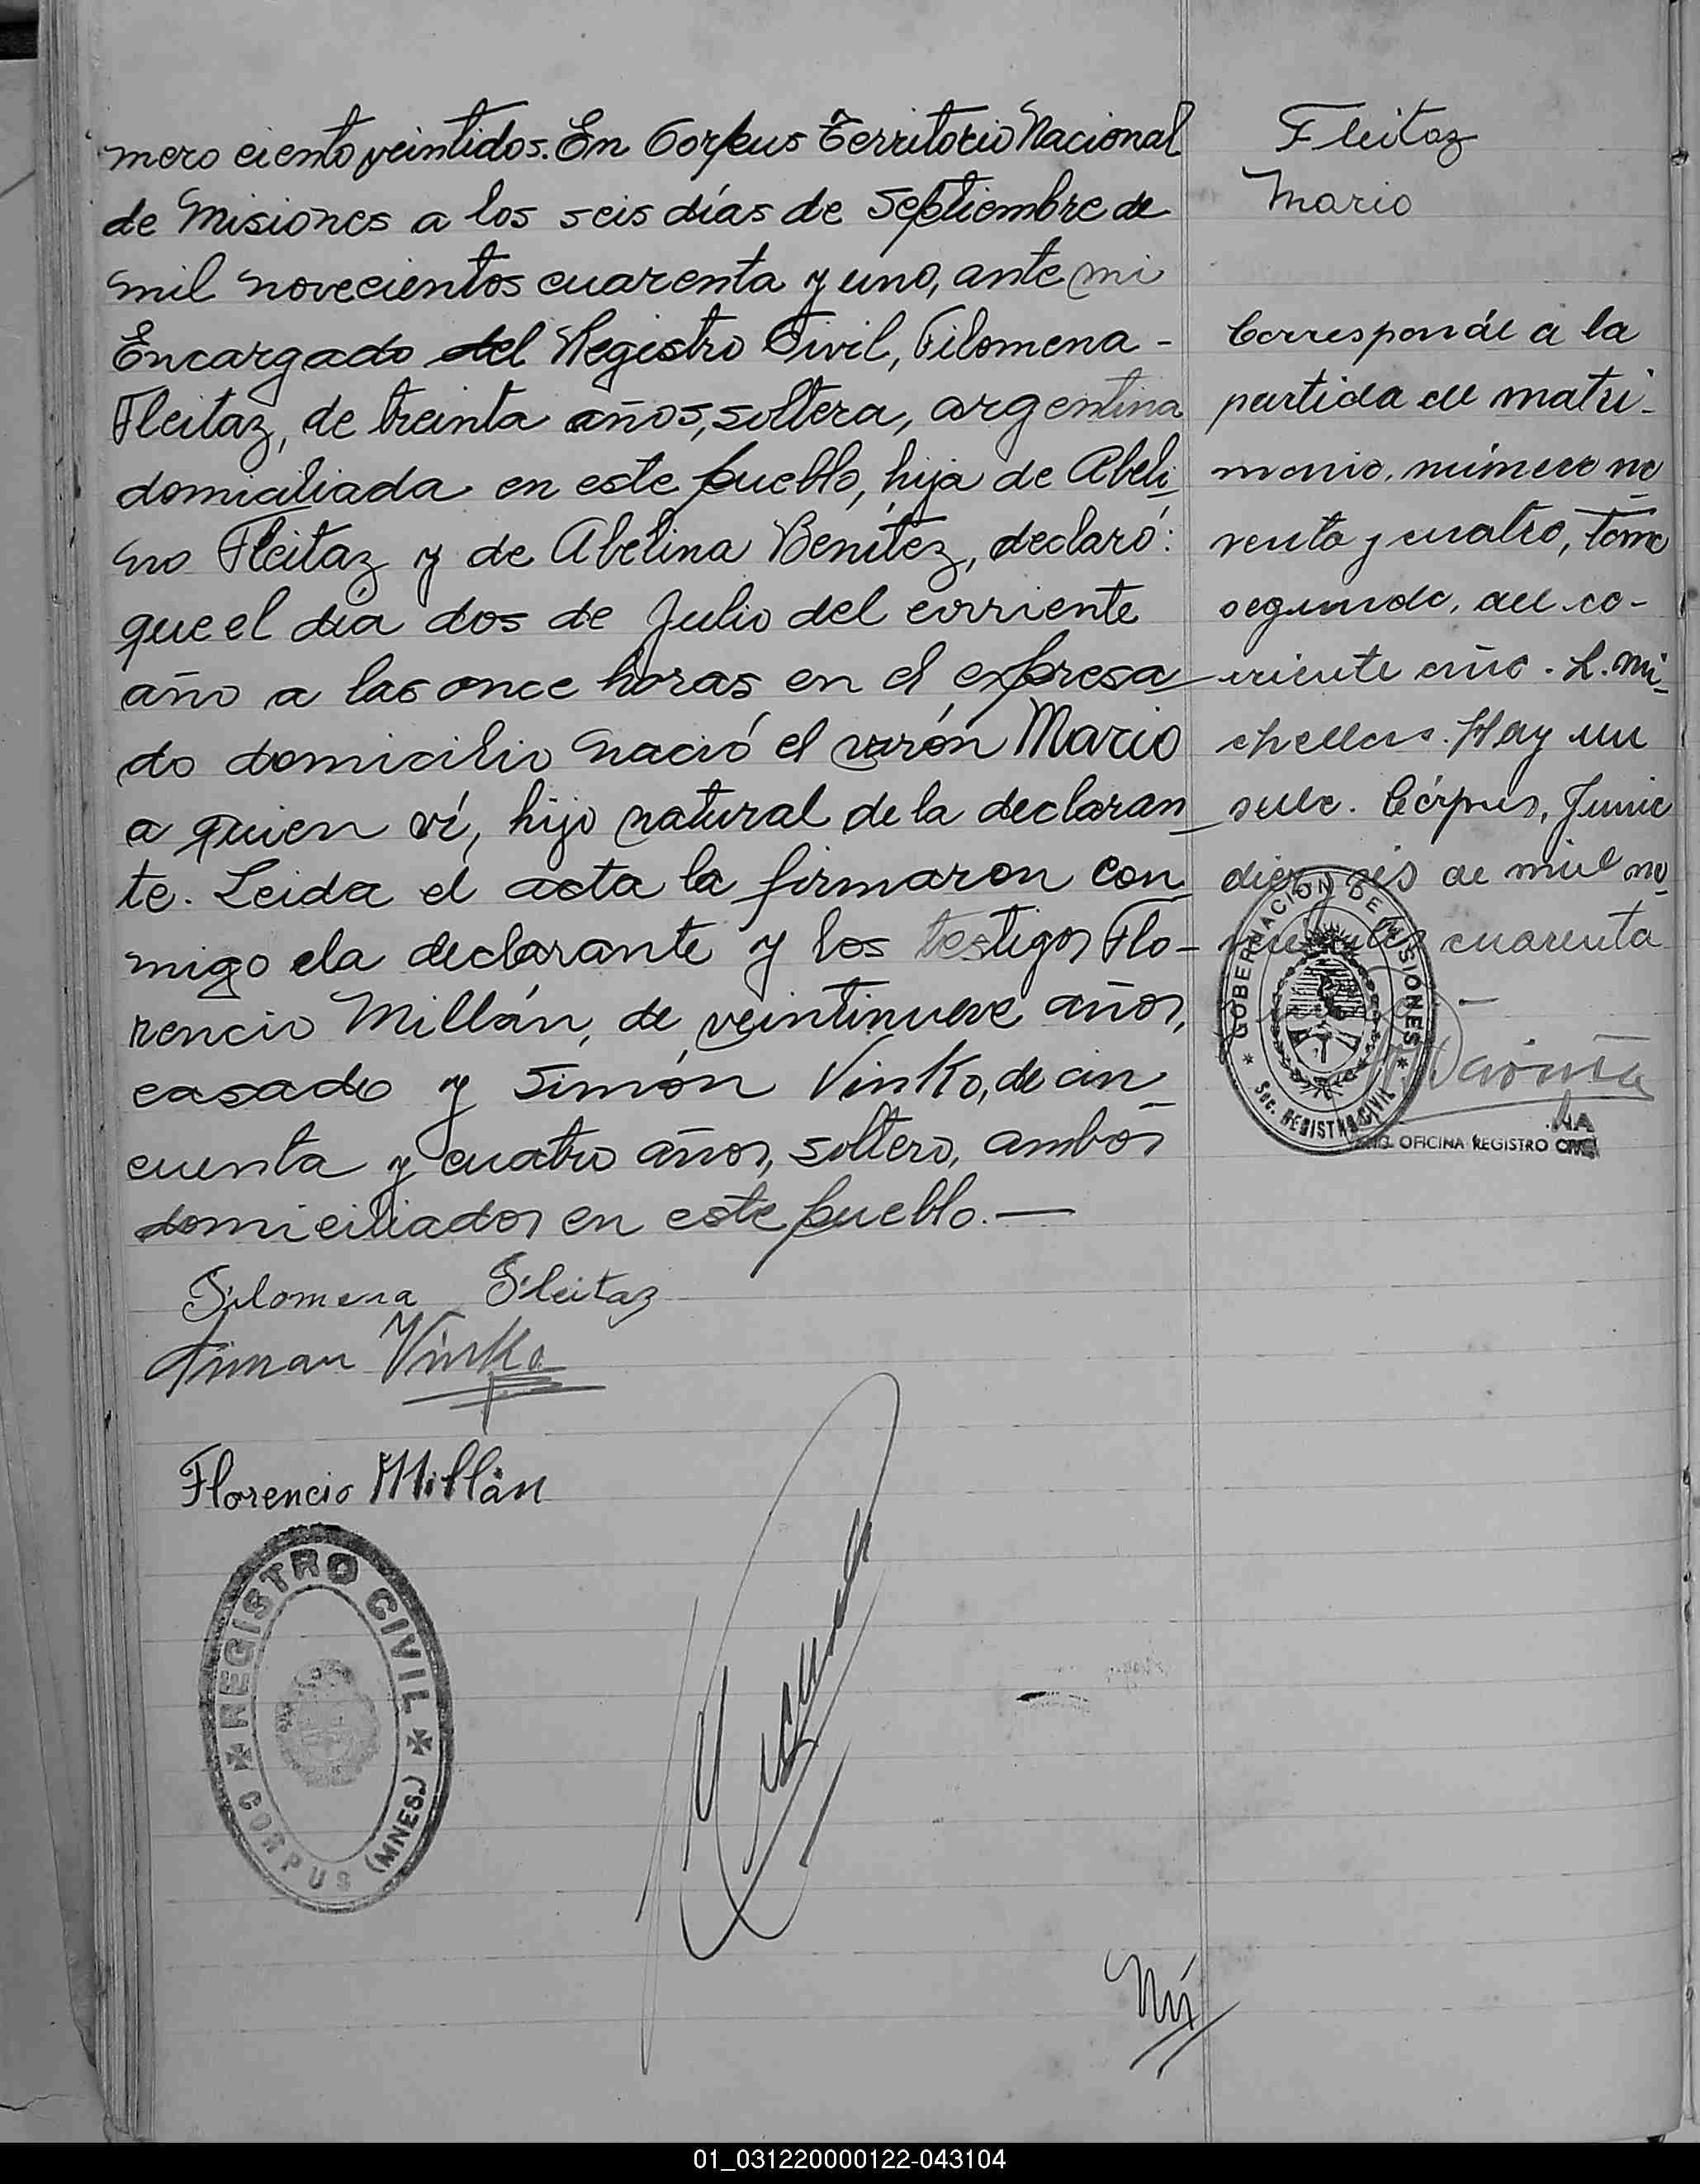 mero ciento veintidos. En Corpus Territorio Nacional
de Misiones a los seis días de Septiembre de
mil novecientos cuarenta y uno, ante mi
Encargado del Registro Civil, Filomena -
Fleitaz, de treinta años, soltera, argentina
domiciliada en este pueblo, hija de Abeli-
no Fleitaz y de Abelina Benítez, declaró:
que el día dos de Julio del corriente
año a las once horas en el expresa-
do domicilio nació el varón Mario
a quien ví, hijo natural de la declaran-
te. Leida el acta la firmaron con-
migo la declarante y los testigos Flo-
rencio Millán, de veintinueve años,
casado y Simón Vinko, de cin-
cuenta y cuatro años, soltero, ambos
domiciliados en este pueblo. —
Filomena Fleitaz
Siman Vinko
Florencio Millán
REGISTRO CIVIL
CORPUS (MNES.)
Nú
Fleitaz
Mario
Corresponde a la
partida de matri-
monio, número no-
venta y cuatro, tomo
segundo, del co-
rriente año. L. Mi-
chellars. Hay un
sello. Córpus, Junio
diez y seis de mil no-
vecientos cuarenta
GOBERNACION DE MISIONES
Sec. REGISTRO CIVIL
OFICINA REGISTRO CIVIL
01_031220000122-043104